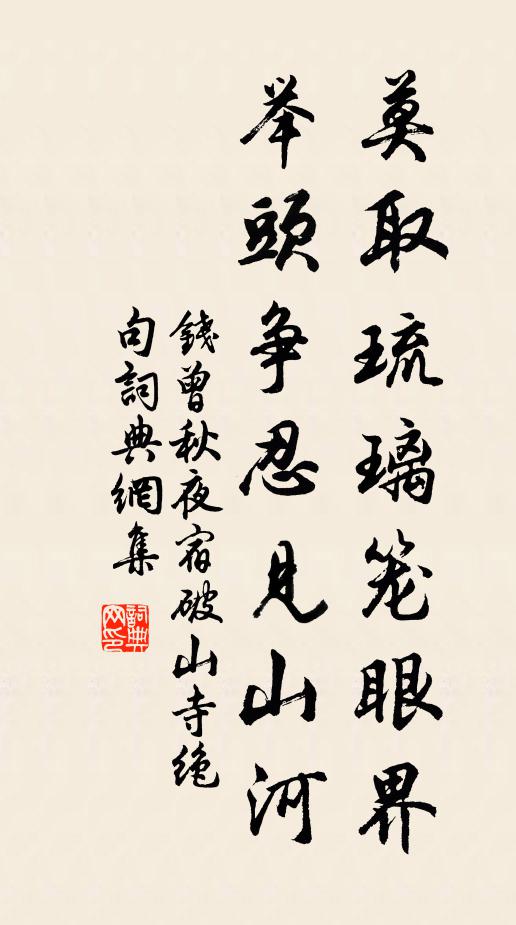 莫取琉璃笼眼界
举頭争忍見山河
錢曾秋夜宿破山寺绝
句詞典網集
詞典
网印